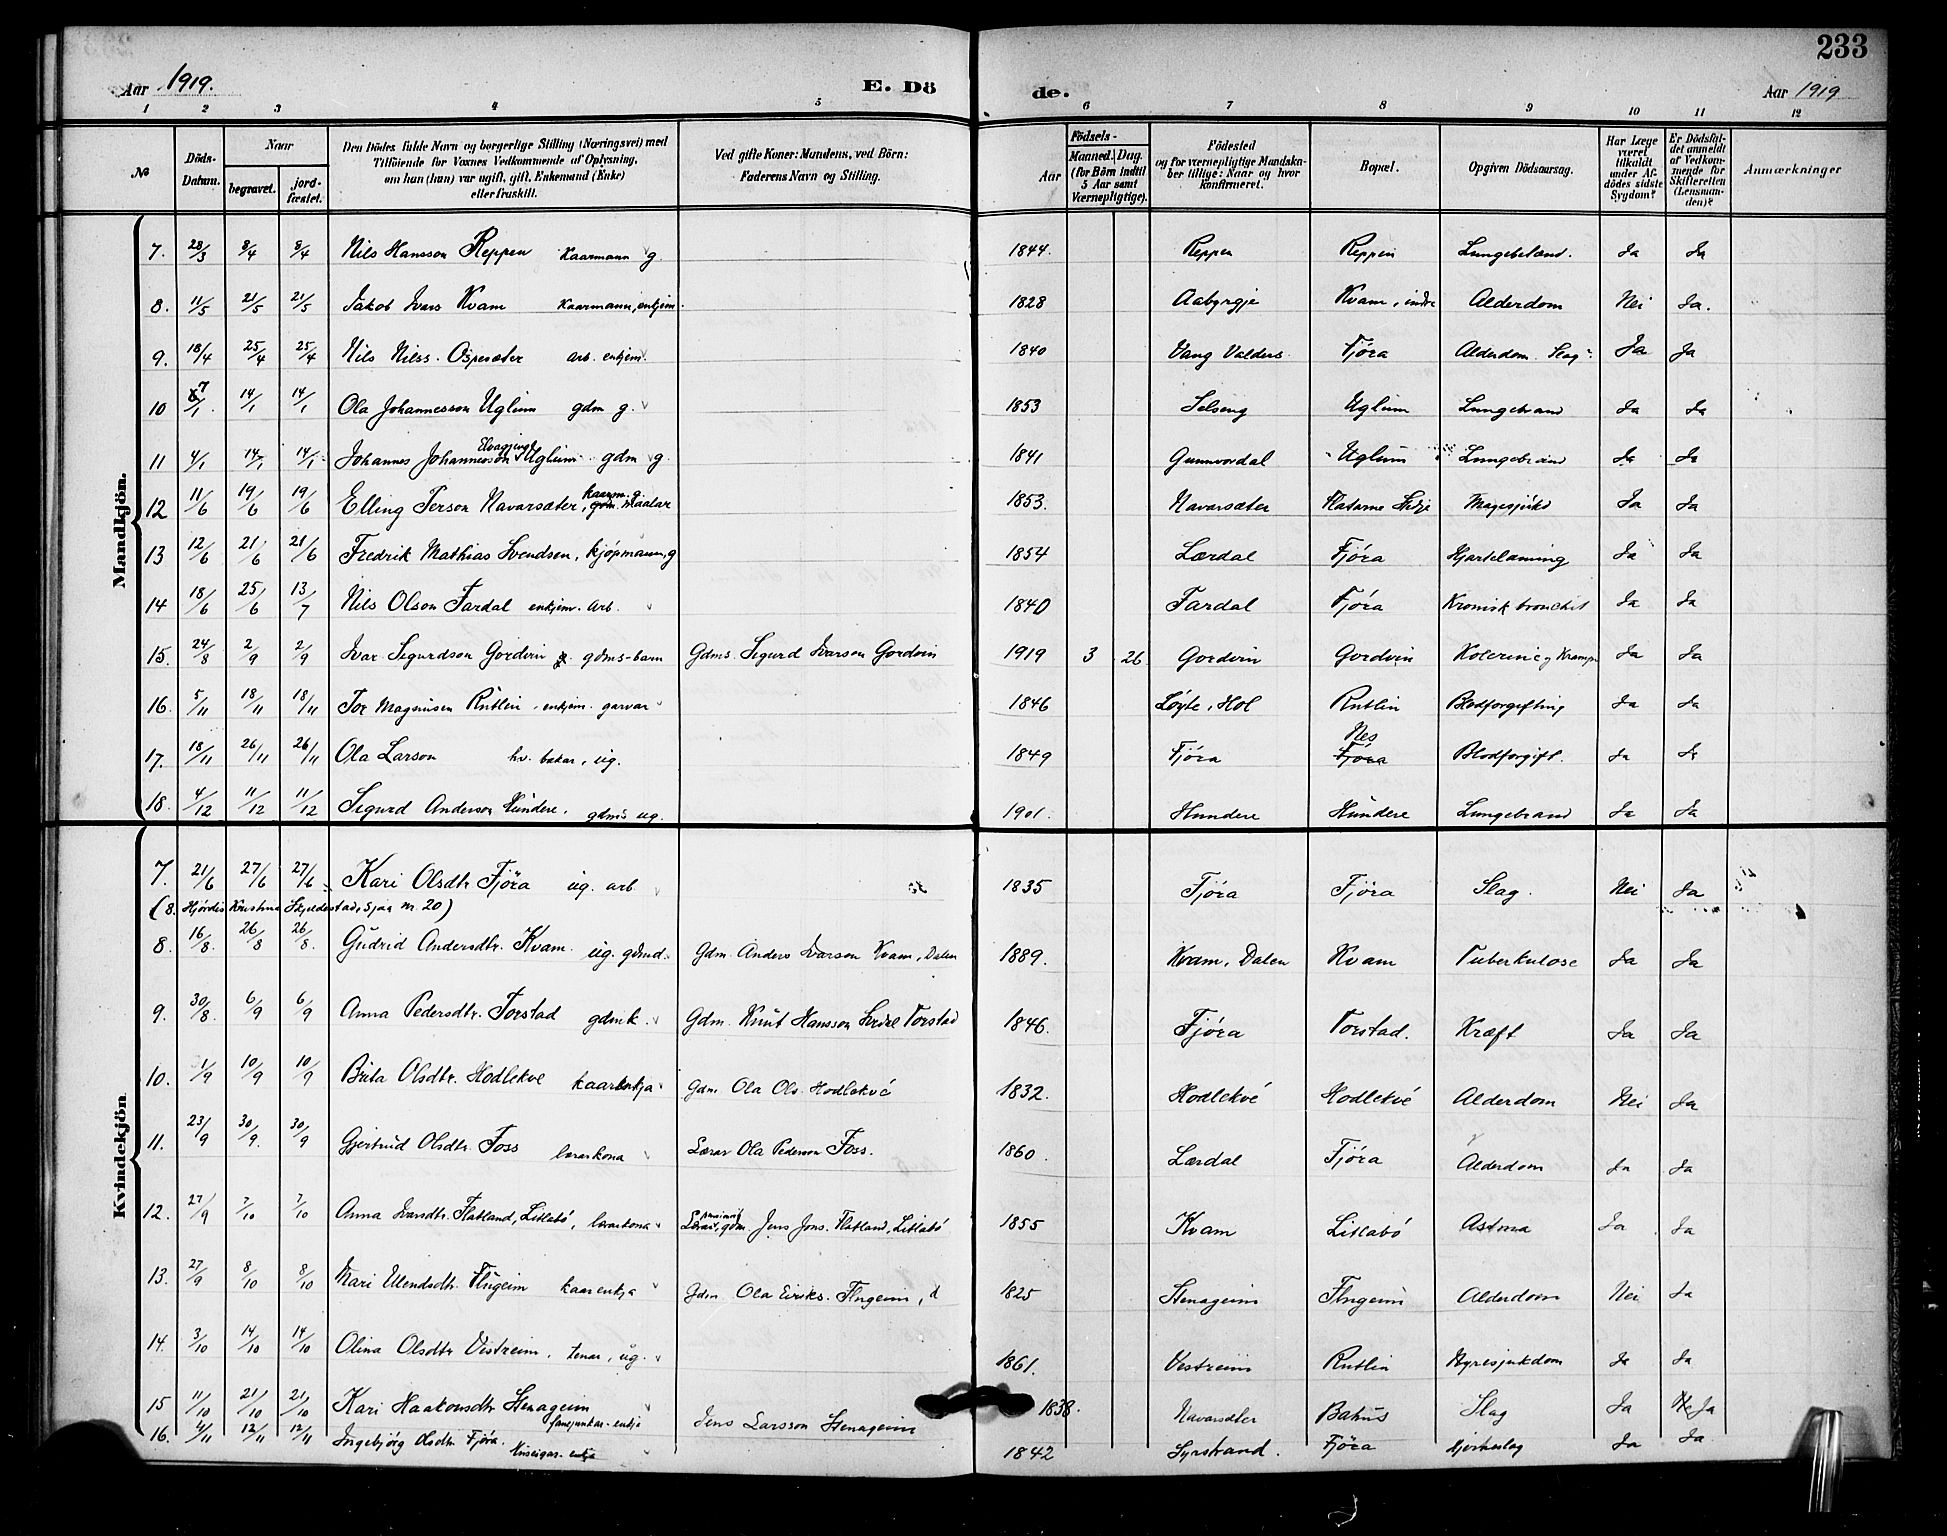 233
Aar 1919. E. Dö de. Aar 1919
1 2 3 4 5 6 7 8 9 10 11 12
№ Döds-Datum. Naar begravet. jord-fæstet. Den Dödes fulde Navn og borgerlige Stilling (Næringsvei) med Tilföiende for Voxnes Vedkommende af Oplysning, om han (hun) var ugift, gift, Enkemand (Enke) eller fraskilt. Ved gifte Koner: Mandens, ved Börn: Faderens Navn og Stilling. Aar Födsels- Maaned. Dag. (for Börn indtil 5 Aar samt Værnepligtige). Födested og for værnepligtige Mandskaber tillige: Naar og hvor konfirmeret. Bopæl. Opgiven Dödsaarsag. Har Læge været tilkaldt under Afdödes sidste Sygdom? Er Dödsfaldet anmeldt af Vedkommende for Skifteretten (Lensmanden)? Anmærkninger
Mandkjön.
7. 28/3 8/4 8/4 Nils Hansson Reppen kaarmann g. 1844. Reppen Reppen Lungebetænd. Ja Ja
8. 11/5 21/5 21/5 Jakob Ivars Kvam kaarmann, enkjem. 1828 Aabyrgje Kvam, indre Alderdom Nei Ja.
9. 18/4 25/4 25/4 Nils Nilss. Ospesæter arb. enkjem. 1840 Vang Valders Fjøra Alderdom. Slag Ja Ja
10 7/1 14/1 14/1 Ola Johannesson Uglum gdm g. 1853 Selseng Uglum Lungebrand Ja Ja
11 4/1 14/1 14/1 Johannes Johannesson Uglum gdm g. 1841 Gunnvordal Uglum Lungebrand Ja Ja
12 11/6 19/6 19/6 Elling Person Navarsæter, kaarm. g. maalar 1853. Navarsæter Flatarne Magesjukd Ja Ja
13 12/6 21/6 21/6 Fredrik Mathias Svendsen, kjøpmann, g 1854 Lærdal Fjøra Hjartelaming Ja Ja
14 18/6 25/6 13/7 Nils Olson Fardal enkjem. arb. 1840 Fardal Fjøra Kronisk bronchit Ja Ja
15. 24/8 2/9 2/9 Ivar Sigurdson Gordvin gdms-barn Gdms. Sigurd Ivarson Gordvin 1919 3 26 Gordvin Gordvin Kolerine og Krampe Ja Ja
16. 5/11 18/11 18/11 Tor Magnusen Rutlin enkjem. garvar 1846 Løyte, Hol Rutlin Blodforgifting Ja Ja
17. 18/11 26/11 26/11 Ola Larson hv. bakar, ug. 1849 Fjøra Nes Fjøra Blodforgift. Ja Ja
18. 4/12 11/12 11/12 Sigurd Anderson Hundere. gdms ug. 1901. Hundere Hundere Lungebrand Ja Ja
Kvindekjön.
7. 21/6 27/6 27/6 Kari Olsdtr Fjøra ug. arb 1835 Fjøra Fjøra Slag. Nei Ja
(8. Hjördis Kristine Skjeldestad, sjaa nr. 20)
8. 16/8. 26/8 26/8. Gudrid Andersdtr. Kvam. ug. gdmd. Gdm. Anders Ivarson Kvam, Dalen 1889. Kvam, Dalen Kvam Tuberkulose Ja Ja
9. 30/8. 6/9 6/9 Anna Pedersdtr. Torstad gdmk. Gdm. Knut Hansson Torstad 1846. Fjøra Torstad. Kræft Ja Ja
10. 1/9 10/9 10/9 Brita Olsdtr. Hodlekve kaarenkja Gdm. Ola Ols. Hodlekvé 1832. Hodlekvé Hodlekvé Alderdom Nei Ja
11. 23/9 30/9. 30/9 Gjertrud Olsdtr. Foss lærarkona Lærar Ola Pederson Foss. 1860. Lærdal Fjøra Alderdom Ja Ja
12. 27/9 7/10 7/10 Anna Ivarsdtr. Flatland, Litlabø, lærarkona Lærar, gdm. Jens Jons. Flatland, Litlabø 1855 Kvam Litlabø Astma Ja Ja
13. 27/9 8/10 8/10 Mari Ellendsdtr. Flugeim kaarenkja Gdm Ola Eiriks. Flugeim, d 1825 Stenageim Flugeim Alderdom Nei Ja
14. 3/10 14/10 14/10 Olina Olsdtr Vestreim. tenar, ug. 1861. Vestreim Rutlin Nyresjukdom Ja Ja
15 11/10 21/10 21/10 Kari Haakonsdtr Stenageim fanejunkar-enkje Jens Larsson Stenageim 1838. Navarsæter Bakus Slag Ja Ja
16. 4/11 12/11 12/11 Ingebjörg Olsdtr Fjøra. enkja 1842 Syrstrand. Fjøra Hjerteslag Ja Ja